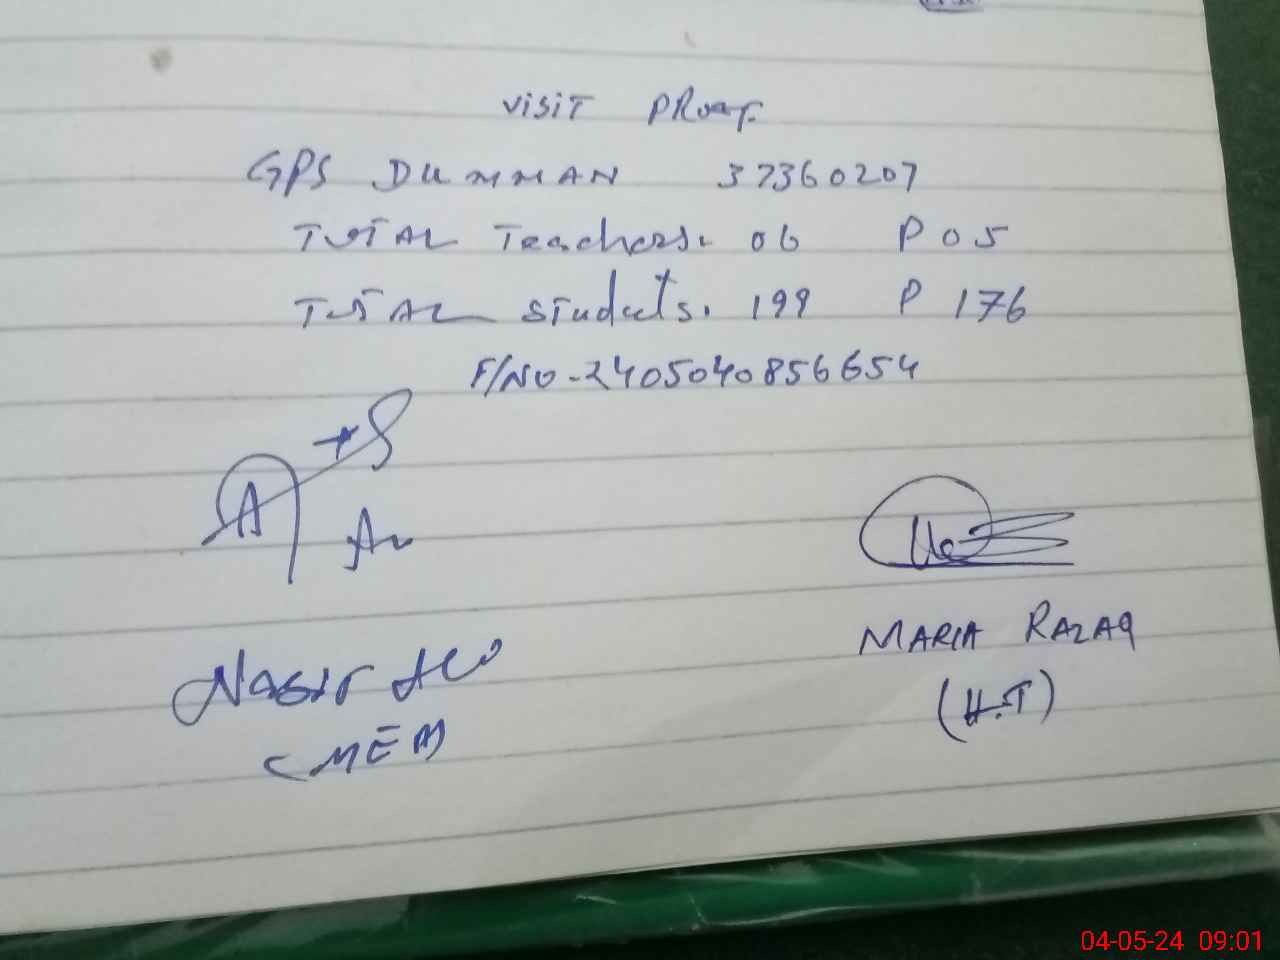 VISIT PROOF
GPS DUMMAN 37360207
TOTAL Teachers. 06 P 05
TOTAL Students. 199 P 176
F/NO-2405040856654
MARIA RAZAQ
(H.T)
Nasir Ali
(MEA)
04-05-24 09:01